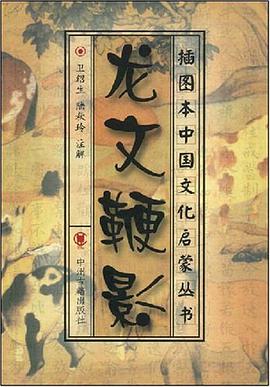 插图本中国文化启蒙丛书
龙文鞭影
卫绍生 陆秋玲 注解
中州古籍出版社